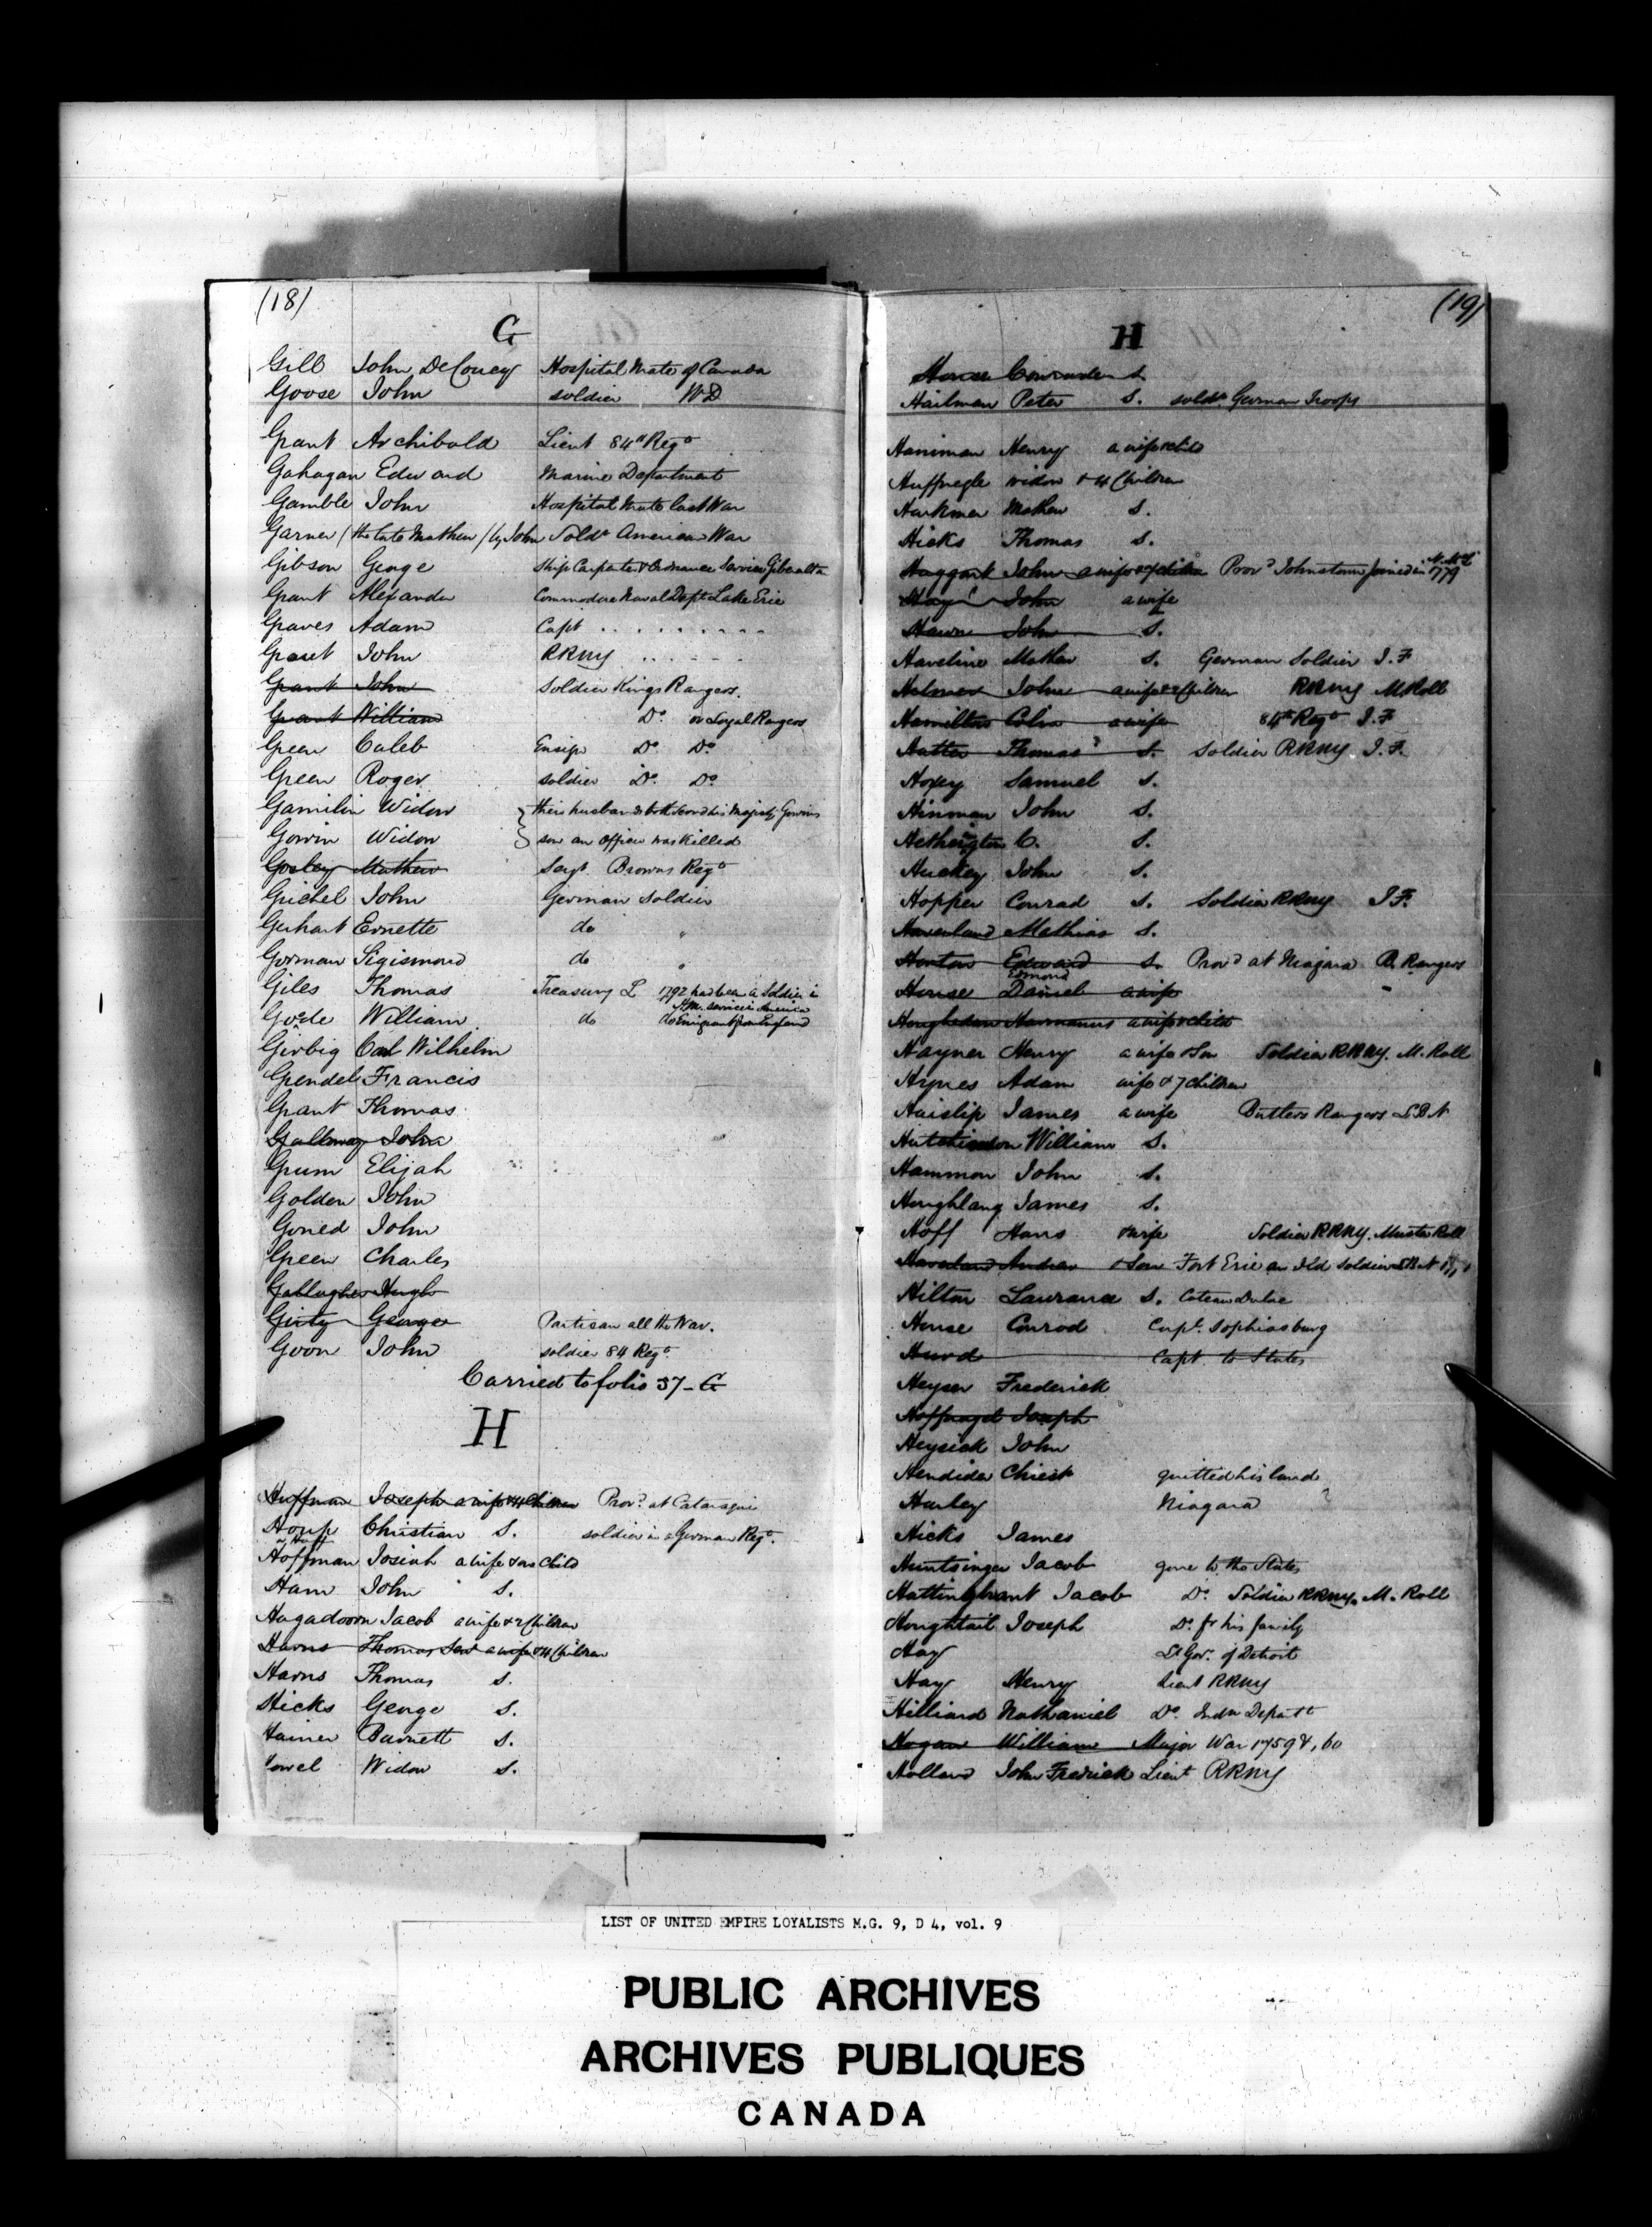 (18)
G
Gill John DeCourcy Hospital Mate of Canada
Goose John soldier WD
Grant Archibald Lieut 84th Regt
Gahagan Edward Marine Department
Gamble John Hospital Mate last War
Garner (the late Mathew) by John Soldr American War
Gibson George Ship Carpenter & Ordnance Service Gibralta
Grant Alexander Commodore Naval Dept Lake Erie
Graves Adam Capt
Grant John RRNY
Grant John Soldier Kings Rangers
Grant William Do or Loyal Rangers
Green Caleb Ensign Do Do
Green Roger soldier Do Do
Gamilin Widow their husbands both served his Majesty Gowins
Gowin Widow son an Officer was killed
Gosley Mathew Sergt. Browns Regt
Grichel John German Soldier
Gerhart Ernette do "
Gorman Sigismond do "
Giles Thomas Treasury L 1792 had been a Soldier in
H.M. service in America
Goode William do do Emigrant from England
Girbig Carl Wilhelm
Grendel Francis
Grant Thomas
Galloway John
Grum Elijah
Golden John
Goned John
Green Charles
Gallagher Hugh
Girty George Partisan all the War.
Goon John soldier 84 Regt
Carried to folio 37-G
H
Hoffman Joseph a wife & 4 Children Provd at Cataraqui
Houp Christian S. soldier in a German Regt.
or Huff
Hoffman Josiah a wife & one Child
Ham John S.
Hagadoorn Jacob a wife & 2 Children
Harns Thomas Senr a wife & 4 Children
Harns Thomas S.
Hicks George S.
Hainer Barnett S.
Howel Widow S.
(19)
H
S.
Hailman Peter S. soldr German Troops
Haniman Henry a wife & child
Huffnegle widow & 4 Children
Harkmer Mathew S.
Hicks Thomas S.
Haggart John a wife & 7 children Provd Johnstown joined in 1779
Hay John a wife
Hawn John S.
Haveline Mathew S. German Soldier I.F
Helmer John a wife & 2 Children RRNY M Roll
Hamilton Colin a wife 84th Regt I.F
Hatter Thomas S. Soldier RRNY I.F.
Hoxey Samuel S.
Hinman John S.
Hetherington C. S.
Huckey John S.
Hopper Conrad S. Soldier RRNY I F.
Haverland Mathias S.
Horton Edward S. Provd at Niagara B. Rangers
Edmond
House Daniel a wife "
Houghedorn Harmanus a wife & child
Hayner Henry a wife & Son Soldier RRNY. M. Roll
Hynes Adam wife & 7 Children
Haislip James a wife Butlers Rangers S.B.N
Hutchinson William S.
Hammon John S.
Houghlang James S.
Hoff Hans & wife Soldier RRNY. Muster Roll
Haverland Andrew & Son Fort Erie an Old Soldier
Hilton Laurance S. Coteau Dulac
House Conrod Capt. Sophiasburg
Hurd Capt. to States
Heyser Frederick
Hoffnagel Joseph
Heysick John
Hendider Christ quitted his land
Hurley Niagara ?
Hicks James
Huntsinger Jacob gone to the States
Hattinghrant Jacob Do. Soldier RRNY. M. Roll
Houghtail Joseph Do. fr his family
Hay Lt Gov. of Detroit
Hay Henry Lieut RRNY
Hilliard Nathaniel Do. Indn Departt
Hogan William Major War 1759 &, 60
Holland John Fredrick Lieut RRNY
LIST OF UNITED EMPIRE LOYALISTS M.G. 9, D 4, vol. 9
PUBLIC ARCHIVES
ARCHIVES PUBLIQUES
CANADA